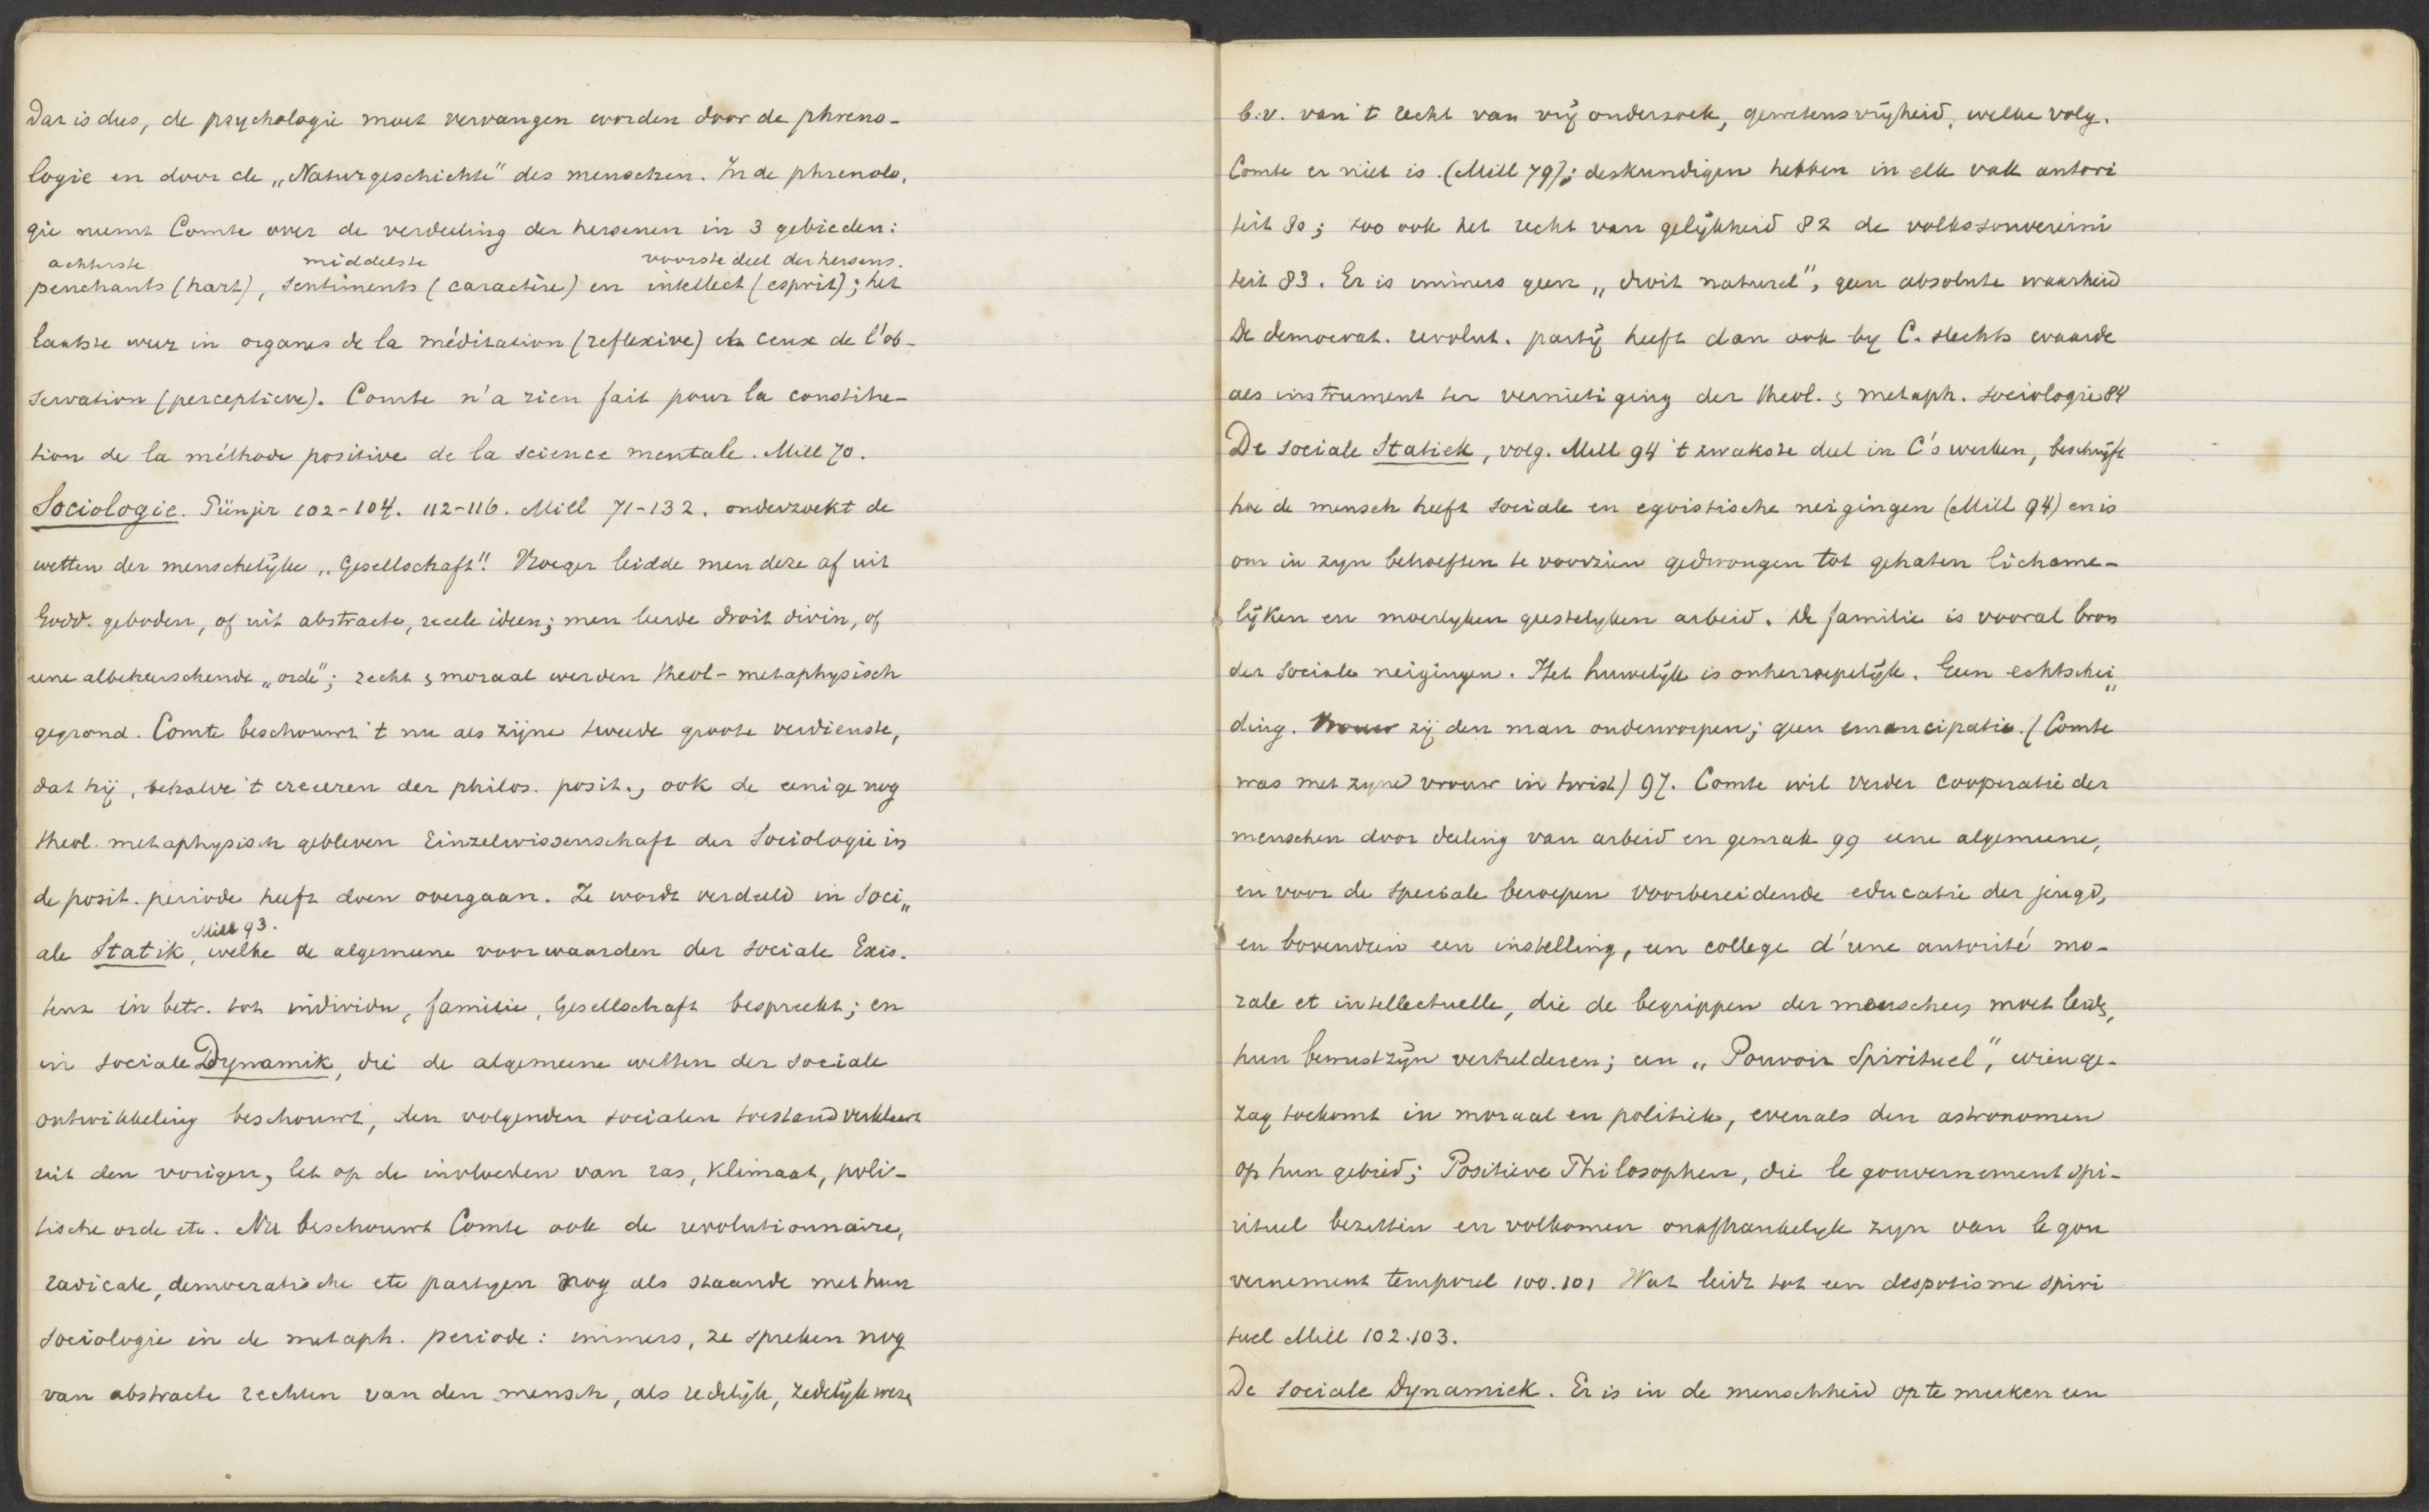 Dat is dus, de psychologie moet vervangen worden door de phreno-
logie en door de „Naturgeschichte" des menschen. In de phrenolo,
gie neemt Comte over de verdeeling der hersenen in 3 gebieden:
achterste middelste voorste deel der hersens.
penchants (hart), sentiments (caractère) en intellect (esprit); het
laatste weer in organes de la méditation (reflexive) en ceux de l'ob-
servation (perceptieve). Comte n'a rien fait pour la constitu-
tion de la méthode positive de la science mentale. Mill 70.
Sociologie. Pünjer 102-104. 112-116. Mill 71-132. onderzoekt de
wetten der menschelijke „Gesellschaft". Vroeger leidde men deze af uit
Godd. geboden, of uit abstracte, reeele ideen; men leerde droit divin, of
eene albeheerschende „orde"; recht & moraal werden theol-metaphysisch
gegrond. Comte beschouwt 't nu als zijne tweede groote verdienste,
dat hij, behalve 't creeeren der philos. posit., ook de eenige nog
theol. metaphysisch gebleven Einzelwissenschaft der Sociologie in
de posit. periode heeft doen overgaan. Ze wordt verdeeld in Soci„
Mill 93.
ale Statik, welke de algemeene voorwaarden der sociale Exis-
tenz in betr. tot individu, familie, Gesellschaft bespreekt; en
in sociale Dynamik, die de algemeene wetten der sociale
ontwikkeling beschouwt, den volgenden socialen toestand verklaart
uit den vorigen, let op de invloeden van ras, klimaat, poli-
tische orde etc. Nu beschouwt Comte ook de revolutionnaire,
radicale, democratische etc partyen nog als staande met hun
sociologie in de metaph. periode: immers, ze spreken nog
van abstracte rechten van den mensch, als redelijk, zedelijk weze
b.v. van 't recht van vrij onderzoek, gewetensvrijheid, welke volg.
Comte er niet is. (Mill 79); deskundigen hebben in elk vak autori
teit 80; zoo ook het recht van gelijkheid 82 de volkssouvereini
teit 83. Er is immers geen „droit naturel", geen absolute waarheid
De democrat. revolut. partij heeft dan ook by C. slechts waarde
als instrument ter vernietiging der theol. & metaph. sociologie 84
De sociale Statiek, volg. Mill 94 't zwakste deel in C's werken, beschrijft
hoe de mensch heeft sociale en egoistische neigingen (Mill 94) en is
om in zyn behoeften te voorzien gedwongen tot gehaten lichame-
lijken en moeilyken geestelyken arbeid. De familie is vooral bron
der sociale neigingen. Het huwelijk is onherroepelijk. Geen echtschei„
ding. Vrouw zij den man onderworpen; geen emancipatie. (Comte
was met zyne vrouw in twist) 97. Comte wil verder cooperatie der
menschen door deeling van arbeid en gemak 99 eene algemeene,
en voor de speciale beroepen voorbereidende educatie der jeugd,
en bovendien een instelling, een college d'une autorité mo-
rale et intellectuelle, die de begrippen der menschen moet leid,
hun bewustzijn verhelderen; een „Pouvoir Spirituel", wien ge-
zag toekomt in moraal en politiek, evenals den astronomen
op hun gebied; Positieve Philosophen, die le gouvernement spi-
rituel bezetten en volkomen onafhankelyk zyn van le gou
vernement temporel 100.101 Wat leidt tot een despotisme spiri
tuel Mill 102.103.
De sociale Dynamiek. Er is in de menschheid op te merken een